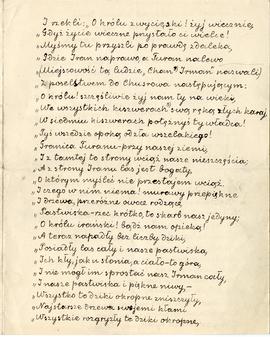 I rzekli: „O królu zwycięski! żyj wiecznie,
„Gdyż życie wieczne przystało ci wielce!
„Myśmy tu przyszli po prawdę zdaleka,
„Gdzie Iran naprawo, a Turan nalewo
„(Miejscowość tą ludzie, „Chan Irman" nazwali)
„Z poselstwem do Chusrowa następującym:
„O królu! szczęśliwie żyj nam ty na wieki,
„We wszystkich kiszwerach swą ręką złych karaj
„W siedmiu kiszwerach potężnyś ty władca!
„Tyś wszędzie opoką od zła wszelakiego!
„Granica Turanu przy naszej ziemi,
„I z tamtej to strony wciąż nasze nieszczęścia;
„A z strony Iranu las jest bogaty,
„O którym myśleć nie przestajem wciąż.
„I czego w nim niema! murawy przepiękne
„I drzewa, przeróżne owoce rodzące,
„Pastwiska – rzec krótko, to skarb nasz jedyny;
„O królu irański! Bądź nam opieką!
„A teraz napadły bez liczby dziki,
„Posiadły las cały i nasze pastwiska,
„Ich kły, jak u słonia, a ciało – to góra,
„I nie mógł im sprostać nasz Irman cały,
„I nasze pastwiska i piękne niwy, –
„Wszystko te dziki okropne zniszczyły,
„Najstarsze drzewa swojemi kłami
„Wszystkie rozgryzły te dziki okropne,